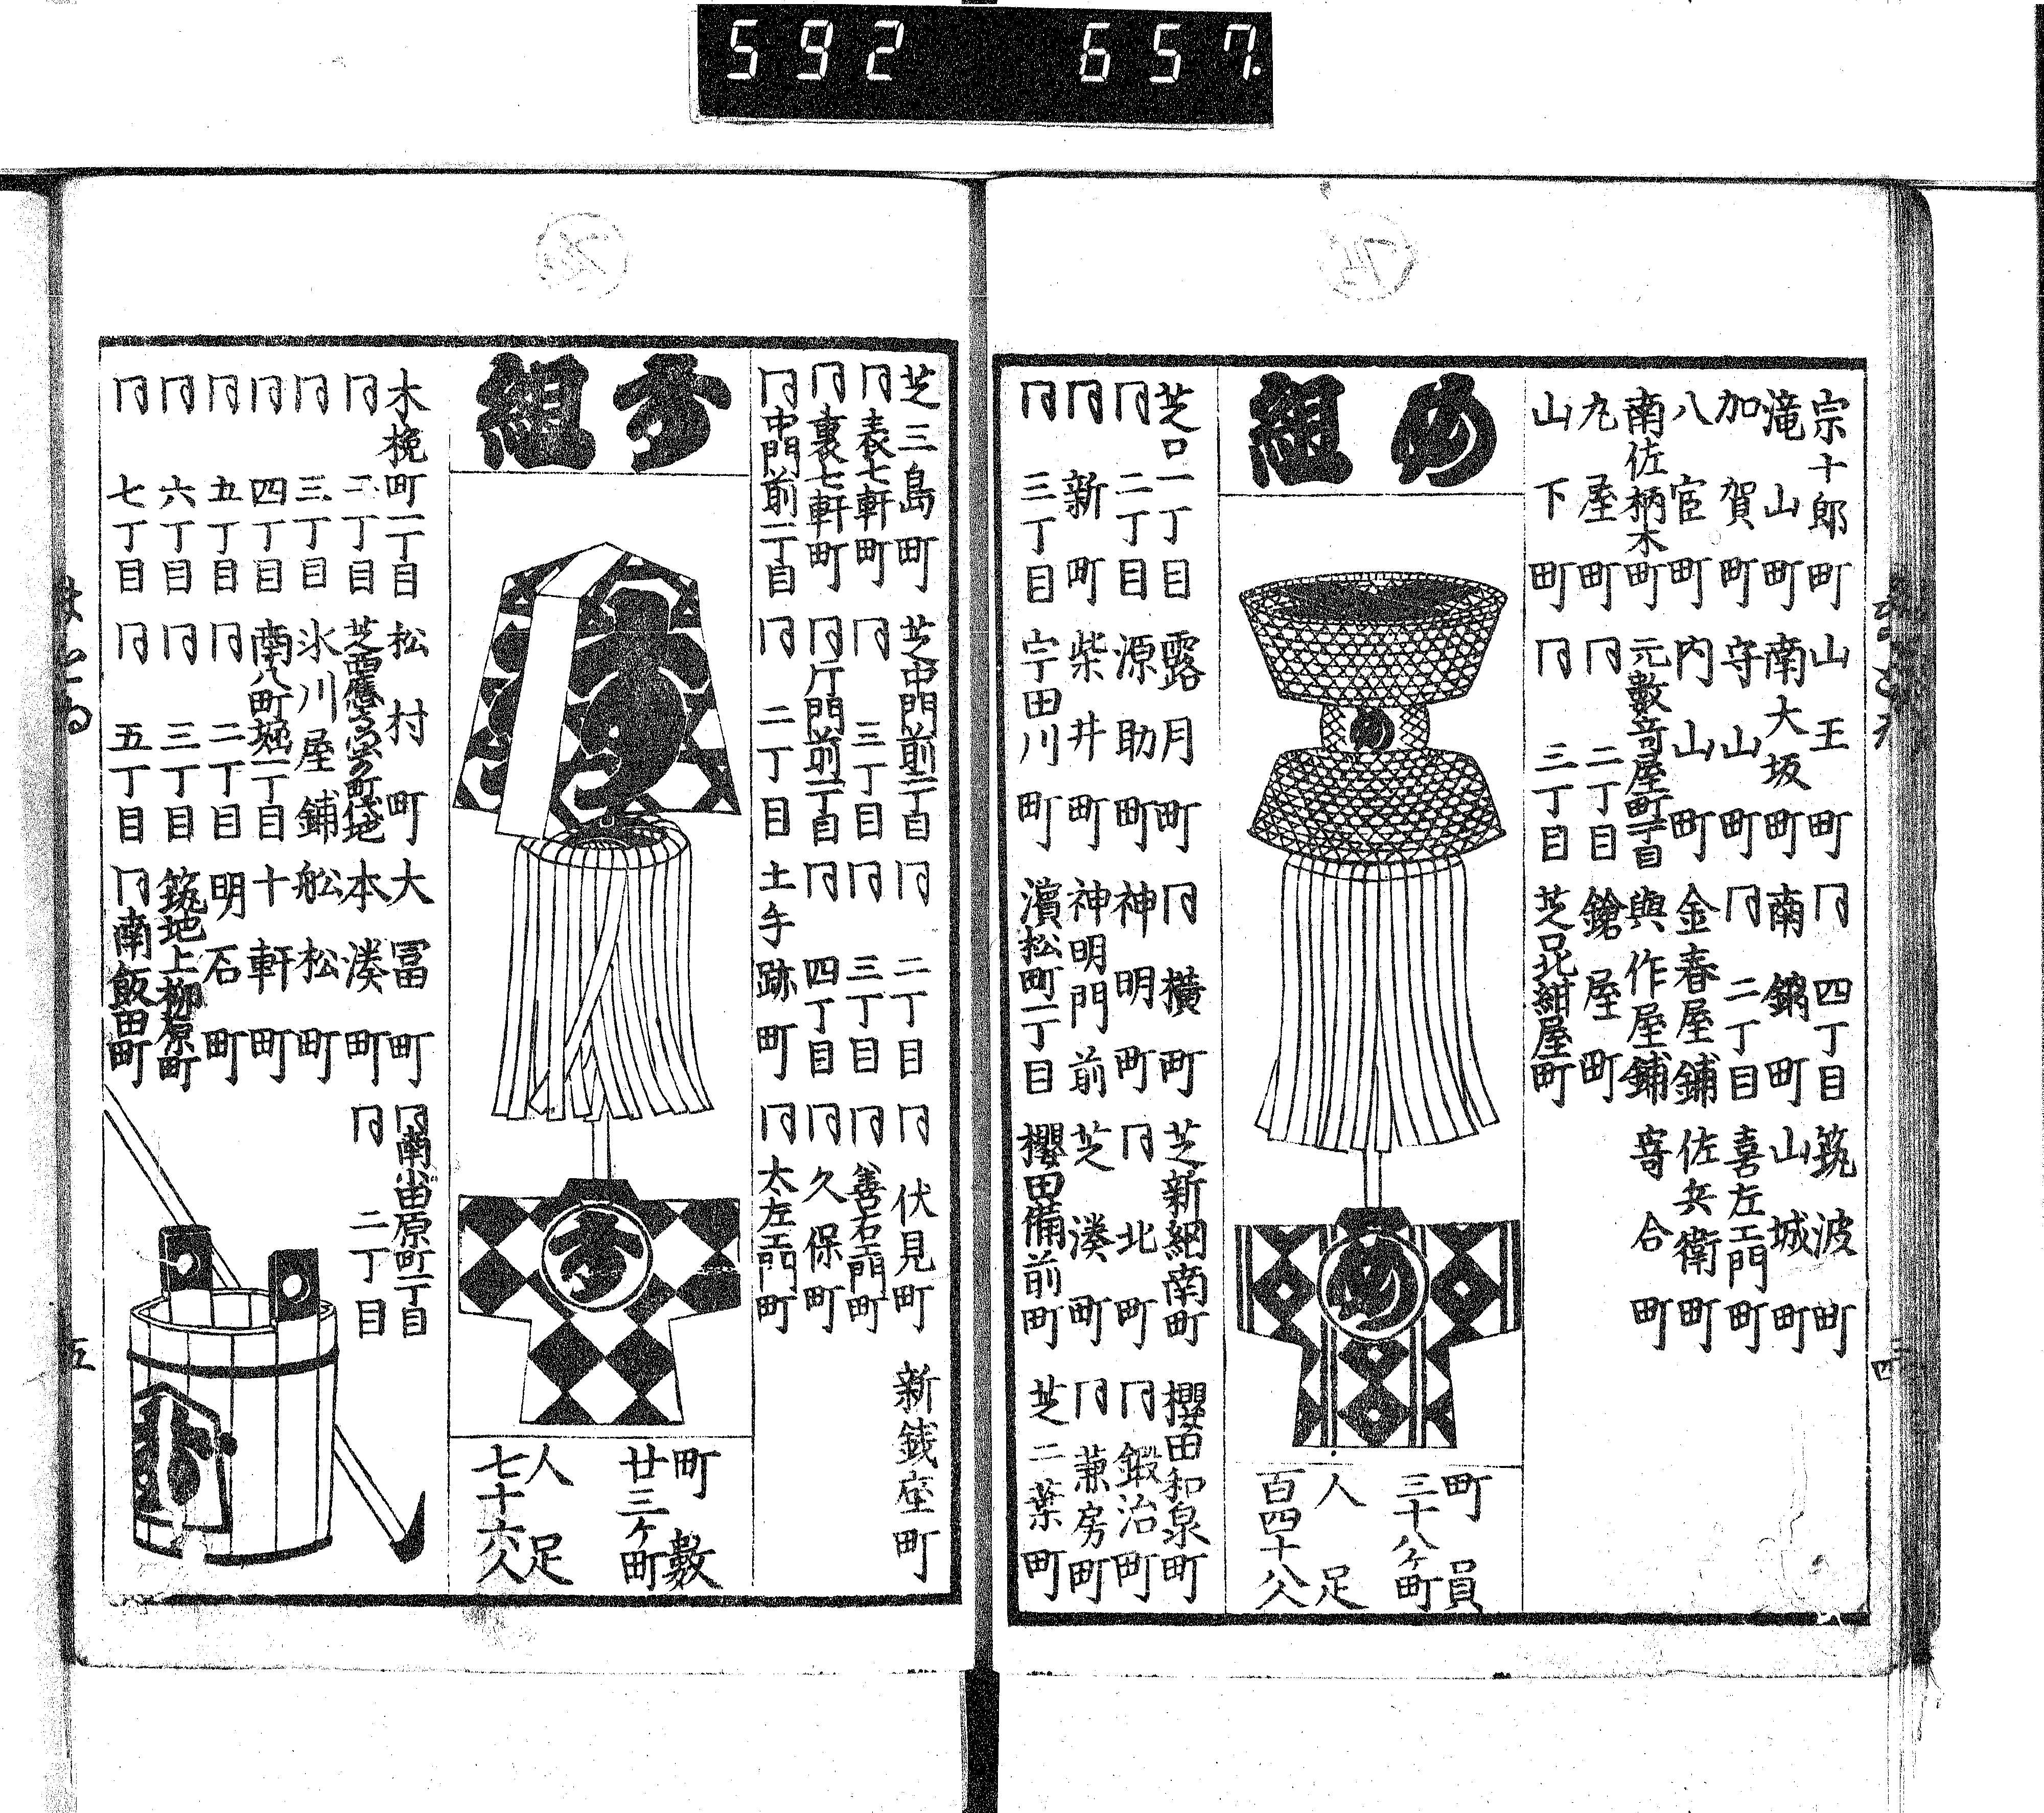 592 657.
宗十郎町
山王町
冂四丁目
筑波町
滝山町
南大坂町
南鍋町
山城町
加賀町
守山町
冂二丁目
喜左エ門町
八官町
内山町
金春屋鋪
佐兵衛町
南佐柄木町
元數寄屋町一丁目
與作屋鋪
寄合町
丸屋町
冂二丁目
鎗屋町
山下町
冂三丁目
芝口北紺屋町
め組
町員
三十八ケ町
人足
百四十八人
芝口一丁目
露月町
冂横町
芝新網南町
櫻田和泉町
冂二丁目
源助町
神明町
冂北町
冂鍛冶町
冂新町
柴井町
神明門前
芝湊町
冂兼房町
冂三丁目
宇田川町
濵松町一丁目
櫻田備前町
芝二葉町
四
芝三島町
芝中門前二丁目
冂二丁目
冂伏見町
新銭座町
冂表七軒町
冂三丁目
冂三丁目
冂善右エ門町
冂裏七軒町
冂片門前一丁目
冂四丁目
冂久保町
冂中門前一丁目
冂二丁目
土手跡町
冂太左エ門町
組
町數
廿三ケ町
人足
七十六人
木挽町一丁目
松村町
大冨町
冂南小田原町一丁目
冂二丁目
芝西應寺町代地
本湊町
冂二丁目
冂三丁目
氷川屋鋪
舩松町
冂四丁目
南八町堀一丁目
十軒町
冂五丁目
冂二丁目
明石町
冂六丁目
冂三丁目
築地上柳原町
冂七丁目
冂五丁目
冂南飯田町
五